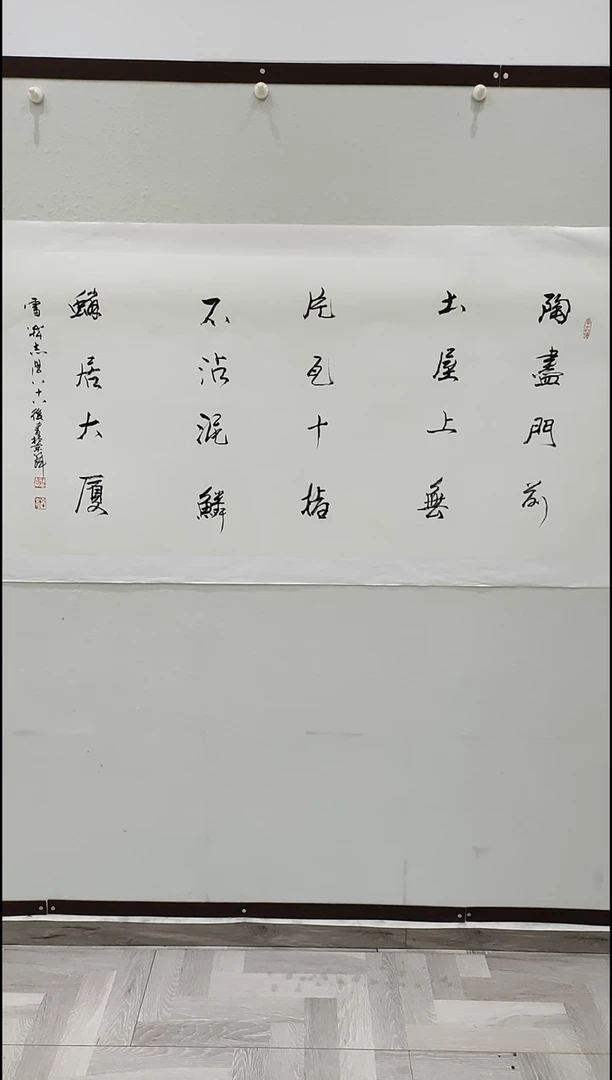 陶盡門前
土屋上無
片瓦十指
不沾泥鱗
鱗居大厦
雪 志 八十 後書